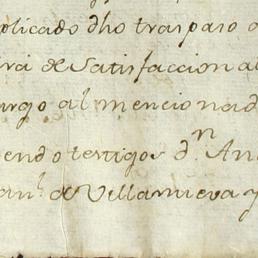 plicado dho traspaso
ra de Satisfaccion al
urgo al mencionad
endo testigos dn An
anl de Villanueva y